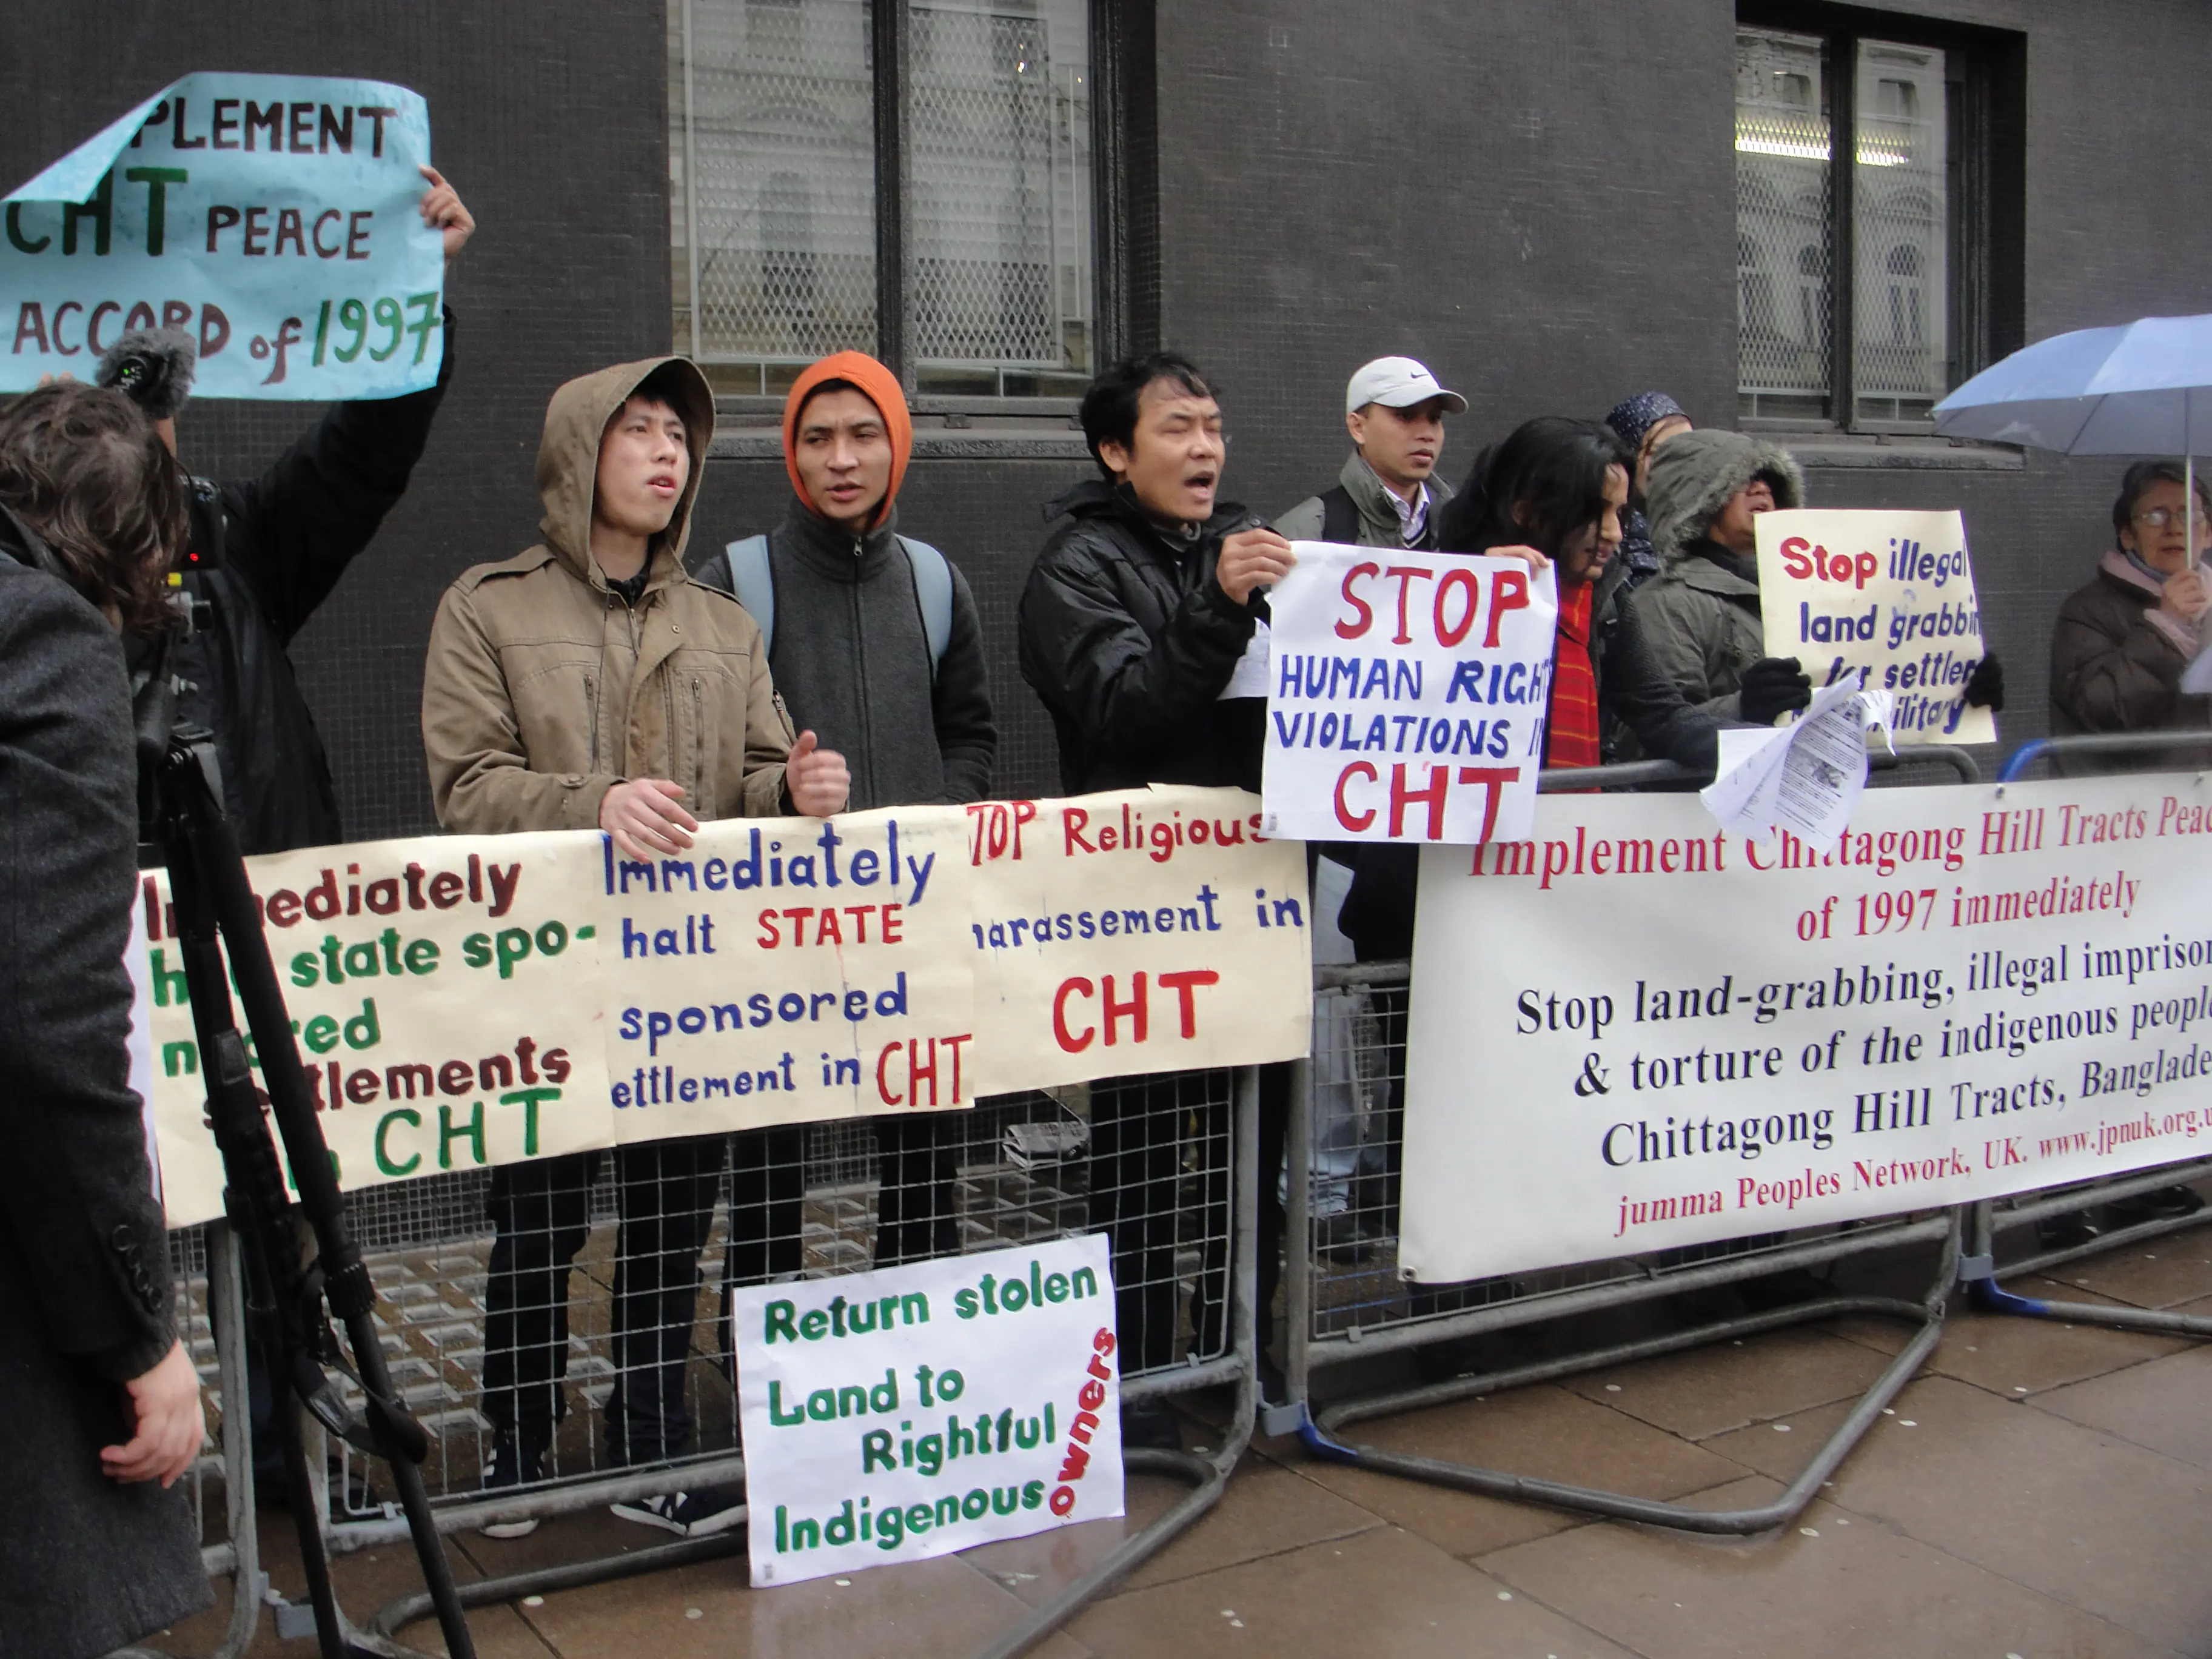 PLEMENT
CHT PEACE
ACCORD of 1997
STOP
HUMAN RIGHT
VIOLATIONS
CHT
Stop illegal
land grabbin
for settler
military
Immediately
state spo-
settlements
CHT
Immediately
halt STATE
sponsored
ettlement in CHT
TOP Religious
harassement in
CHT
Implement Chittagong Hill Tracts Peac
of 1997 immediately
Stop land-grabbing, illegal imprison
& torture of the indigenous people
Chittagong Hill Tracts, Banglade
jumma Peoples Network, UK. www.jpnuk.org.u
Return stolen
Land to
Rightful
Indigenous owners